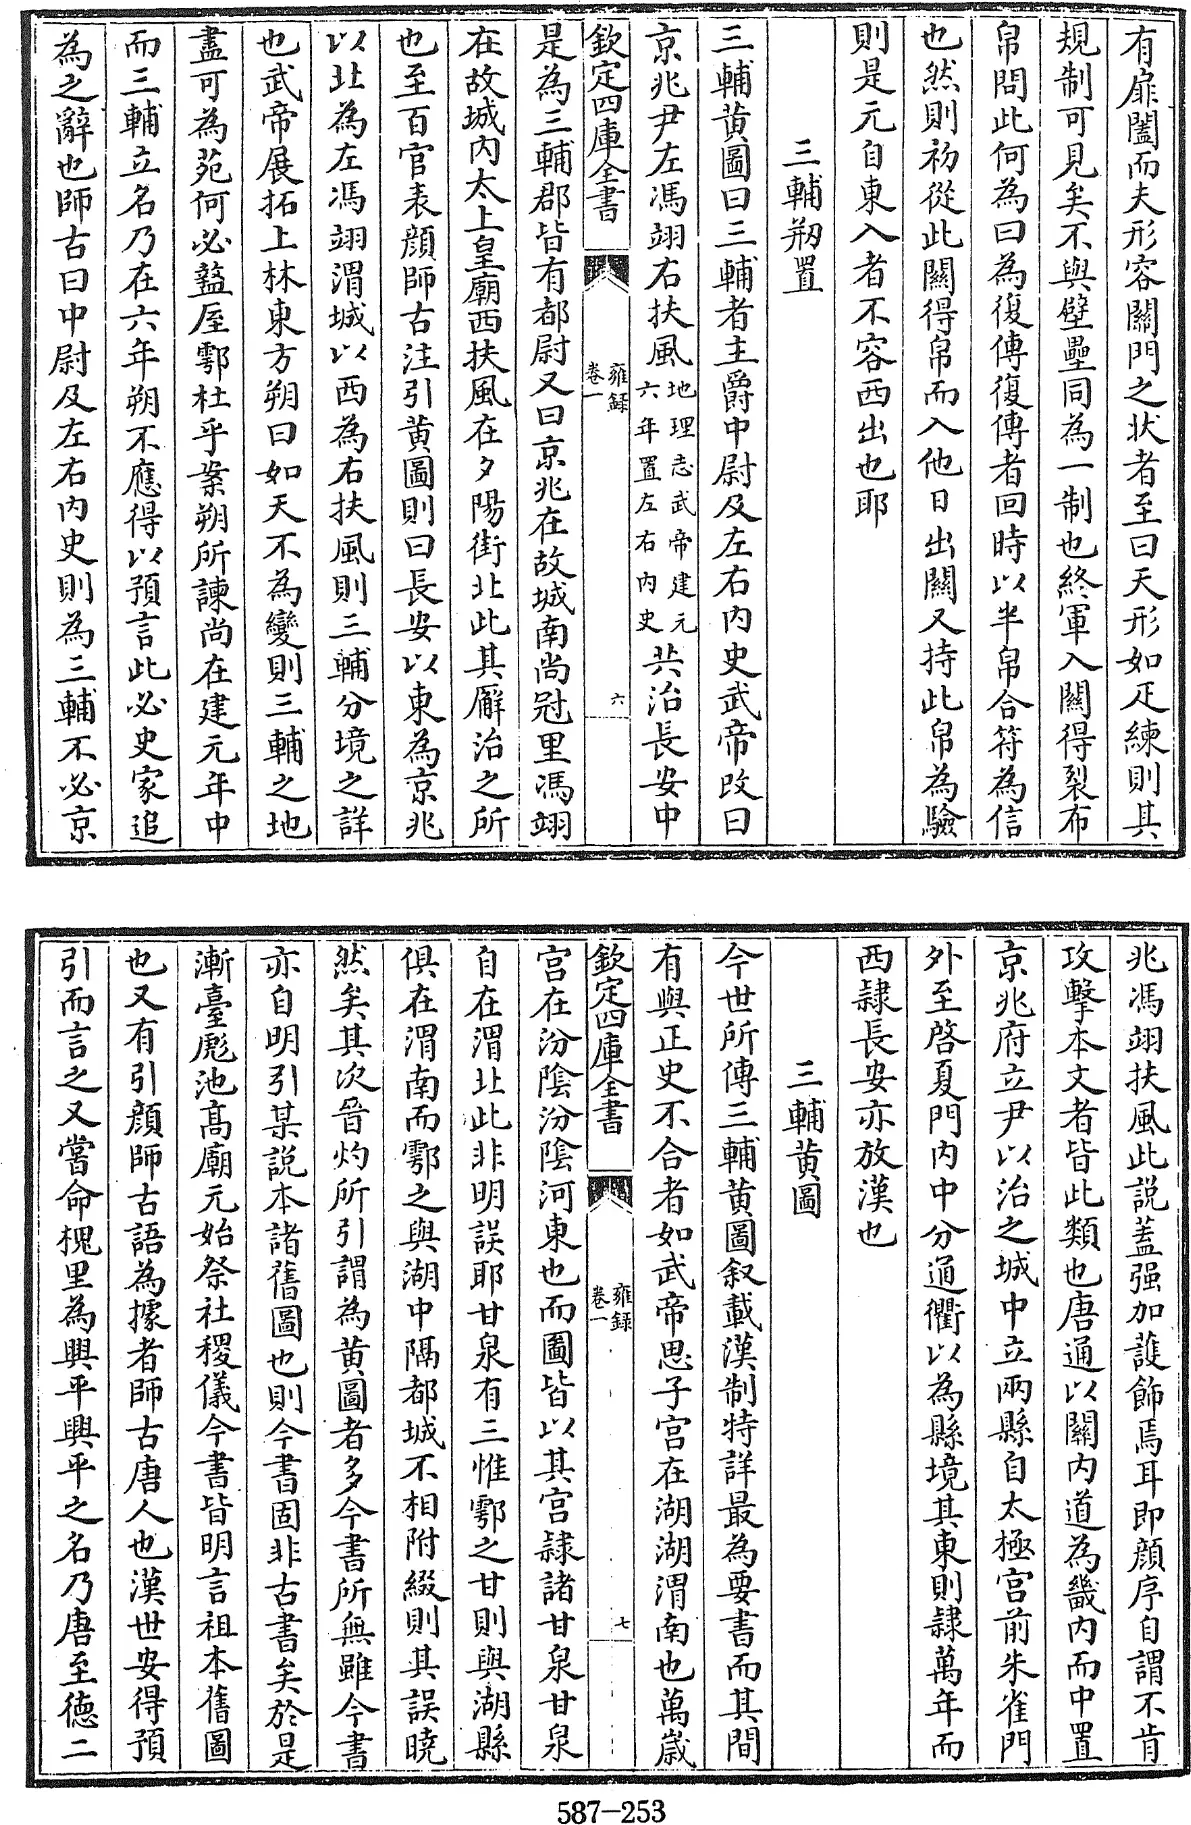 有扉闔而夫形容關門之状者至曰天形如疋練則其
規制可見矣不與壁壘同為一制也終軍入關得裂布
帛問此何為曰為復傳復傳者回時以半帛合符為信
也然則初從此關得帛而入他日出關又持此帛為驗
則是元自東入者不容西出也耶
三輔剏置
三輔黄圖曰三輔者主爵中尉及左右内史武帝改曰
京兆尹左馮翊右扶風地理志武帝建元六年置左右内史共治長安中
欽定四庫全書
雍録
卷一
六
是為三輔郡皆有都尉又曰京兆在故城南尚冠里馮翊
在故城内太上皇廟西扶風在夕陽街北此其廨治之所
也至百官表顔師古注引黄圖則曰長安以東為京兆
以北為左馮翊渭城以西為右扶風則三輔分境之詳
也武帝展拓上林東方朔曰如天不為變則三輔之地
盡可為苑何必盩厔鄠杜乎案朔所諫尚在建元年中
而三輔立名乃在六年朔不應得以預言此必史家追
為之辭也師古曰中尉及左右内史則為三輔不必京
兆馮翊扶風此説蓋强加護飾焉耳即顔序自謂不肯
攻擊本文者皆此類也唐通以關内道為畿内而中置
京兆府立尹以治之城中立兩縣自太極宫前朱雀門
外至啓夏門内中分通衢以為縣境其東則隷萬年而
西隷長安亦放漢也
三輔黄圖
今世所傳三輔黄圖叙載漢制特詳最為要書而其間
有與正史不合者如武帝思子宫在湖湖渭南也萬歳
欽定四庫全書
雍録
卷一
七
宫在汾陰汾陰河東也而圖皆以其宫隷諸甘泉甘泉
自在渭北此非明誤耶甘泉有三惟鄠之甘則與湖縣
俱在渭南而鄠之與湖中隔都城不相附綴則其誤曉
然矣其次晉灼所引謂為黄圖者多今書所無雖今書
亦自明引某説本諸舊圖也則今書固非古書矣於是
漸臺彪池髙廟元始祭社稷儀今書皆明言祖本舊圖
也又有引顔師古語為據者師古唐人也漢世安得預
引而言之又嘗命槐里為興平興平之名乃唐至德二
587-253